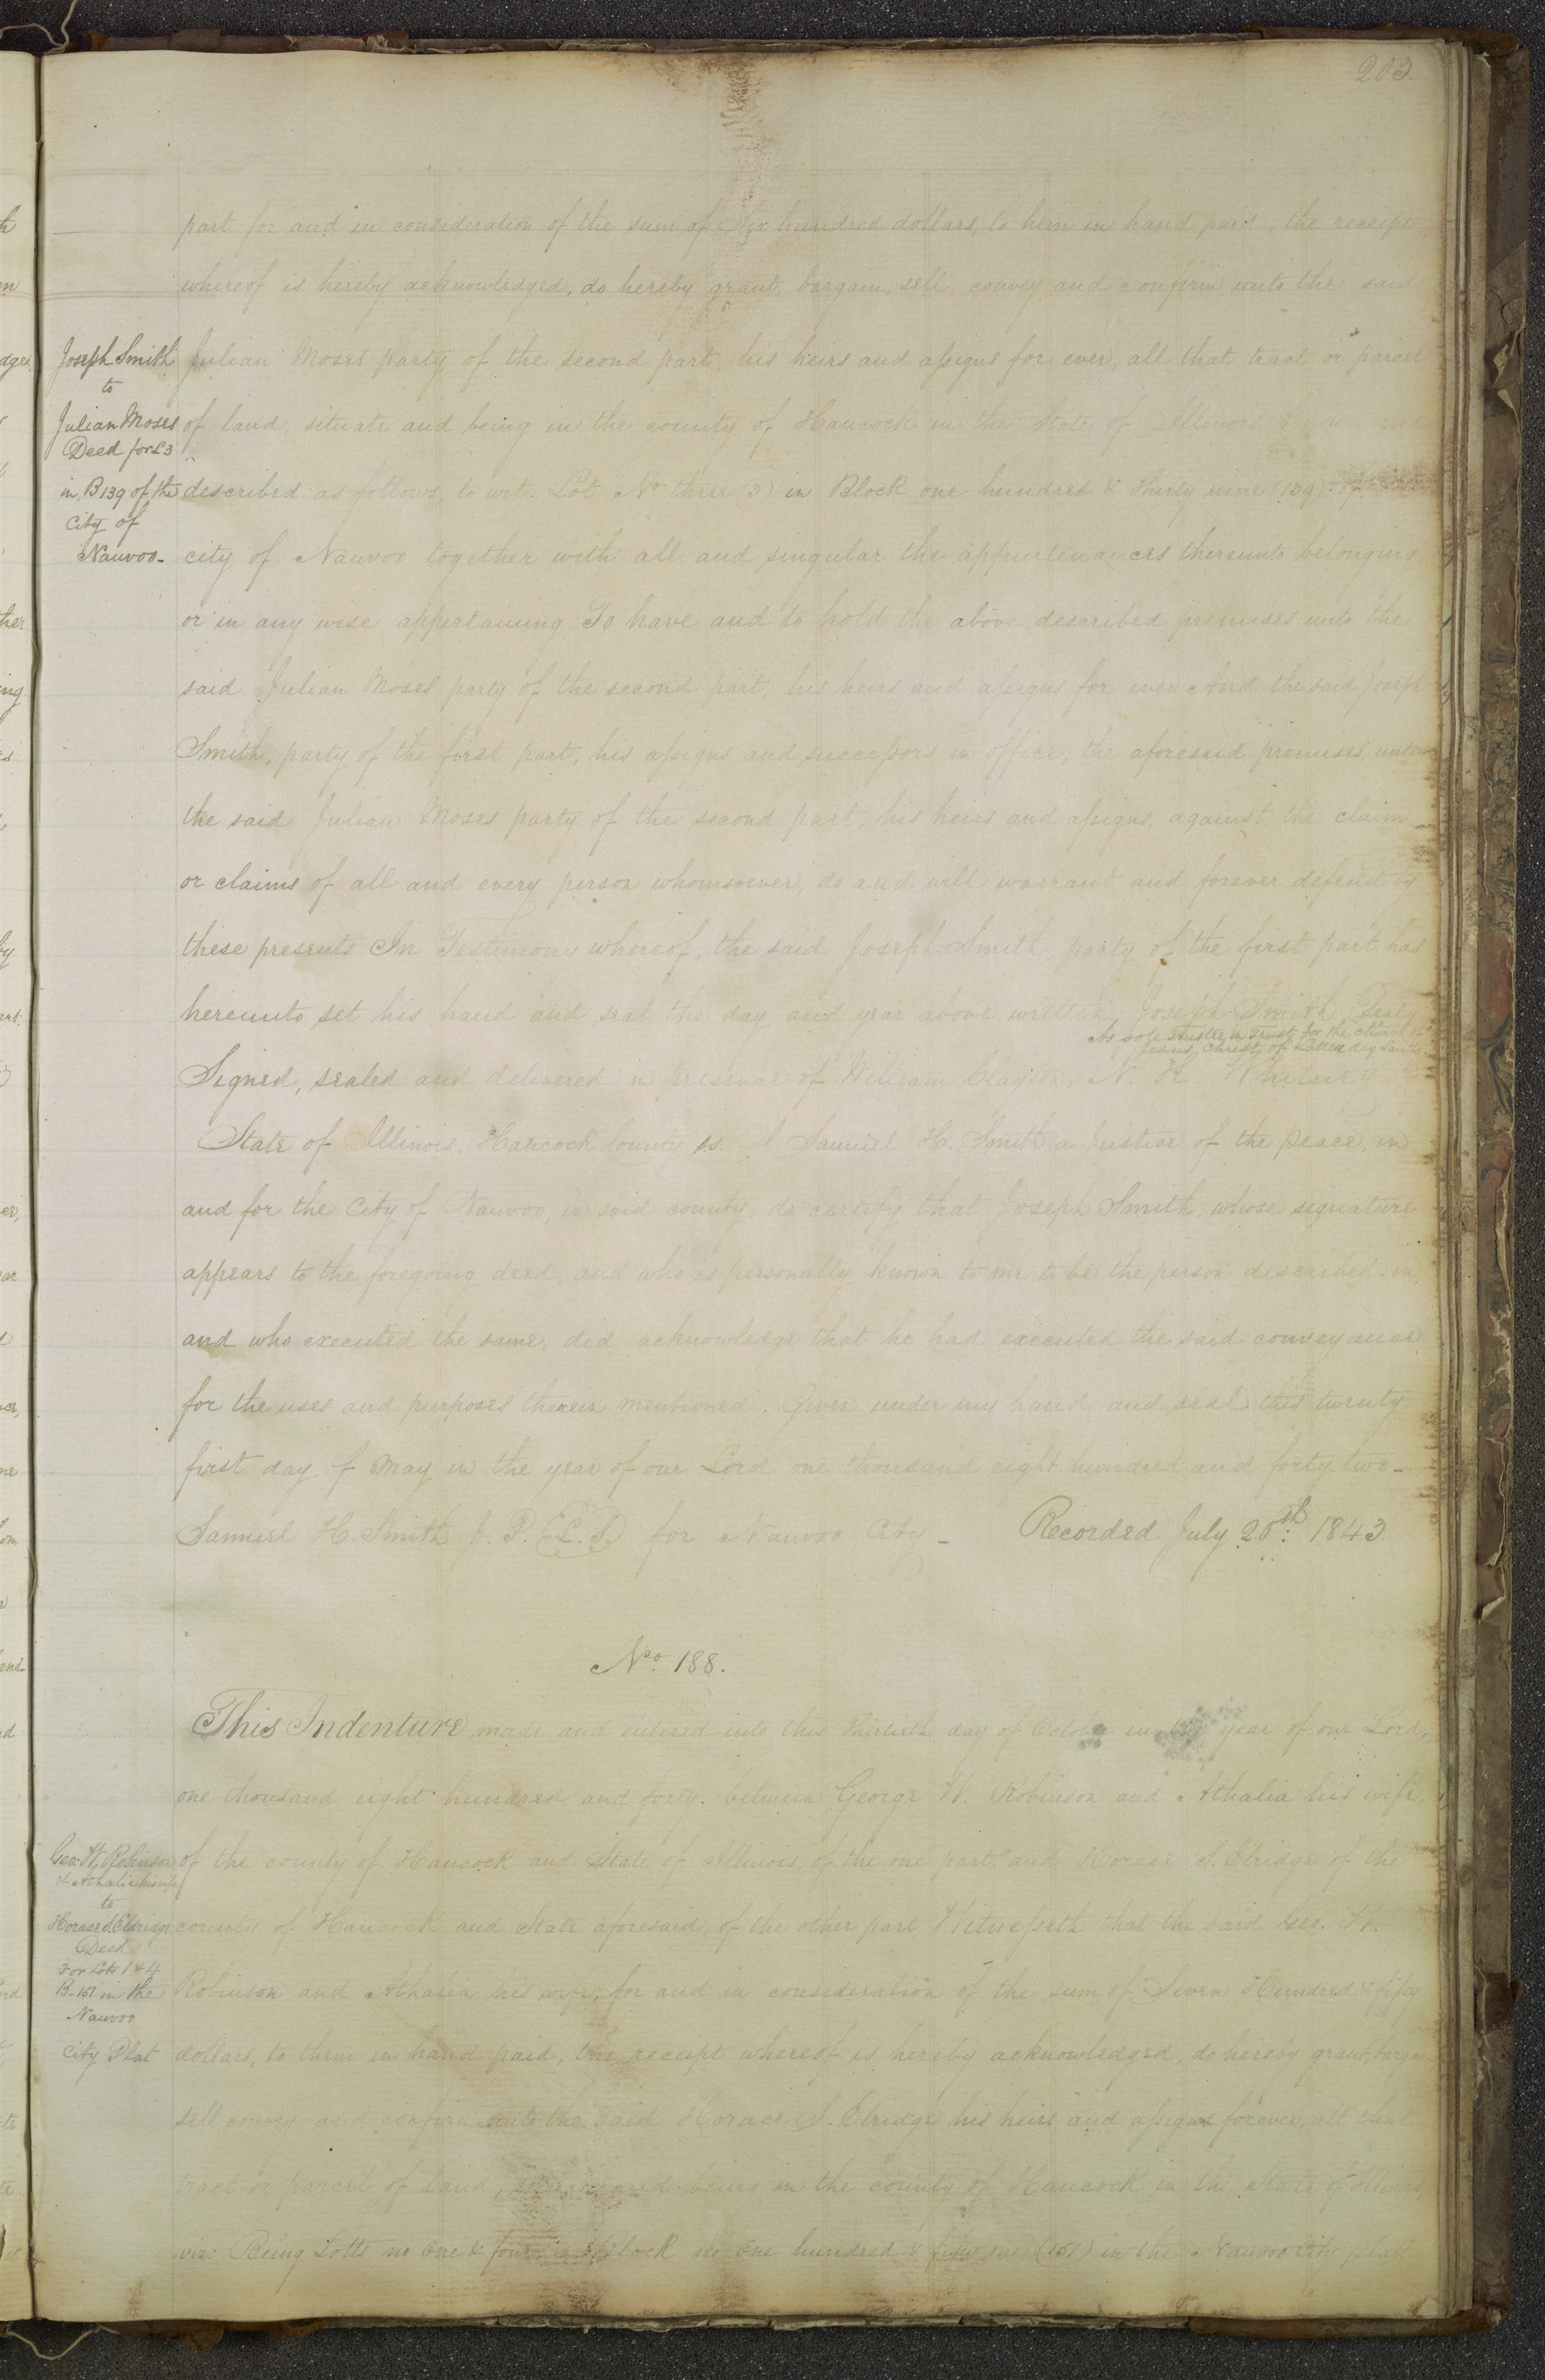 203.
part for and in consideration of the sum of Six hundred dollars, to him in hand paid, the receipt
whereof is hereby acknowledged, do hereby grant, bargain, sell, convey and confirm unto the said
Joseph Smith
to
Julian Moses
Deed for L 3
in B 139 of the
City of
Nauvoo-
Julian Moses party of the second part, his heirs and assigns for ever, all that tract or parcel
of land, situate and being in the county of Hancock in the State of Illinois known and
described as follows, to wit. Lot No three (3) in Block one hundred & thirty nine (139).
city of Nauvoo together with all and singular the appurtenances thereunto belonging
or in any wise appertaining To have and to hold the above described premises unto the
said Julian Moses party of the second part, his heirs and assigns for ever And the said Joseph
Smith, party of the first part, his assigns and successors in office, the aforesaid premises, unto
the said Julian Moses party of the second part, his heirs and assigns, against the claim
or claims of all and every person whomsoever, do and will warrant and forever defend by
these presents In Testimony whereof, the said Joseph Smith, party of the first part has
hereunto set his hand and seal the day and year above written, Joseph Smith Seal
As sole Trustee in Trust for the church of
Jesus Christ of Latter day Saints
Signed, sealed and delivered in presence of William Clayton, N. K. Whitney
State of Illinois, Hancock County ss. I Samuel H. Smith a Justice of the peace, in
and for the City of Nauvoo, in said county, do certify that Joseph Smith, whose signature
appears to the foregoing deed, and who is personally known to me to be the person described in,
and who executed the same, did acknowledge that he had executed the said conveyance
for the uses and purposes therein mentioned. Given under my hand and seal this twenty
first day of May in the year of our Lord one thousand eight hundred and forty two-
Samuel H. Smith J. P. (L. S.) for Nauvoo City - Recorded July 20th: 1843.
No. 188.
This Indenture made and entered into this thirtieth day of October in the year of our Lord,
one thousand eight hundred and forty. between George W. Robinson and Athalia his wife,
Geo. W. Robinson
& Athalia his wife
to
Horace S. Eldridge
Deed
For Lots 1 & 4
B-151 in the
Nauvoo
City Plat
of the county of Hancock and State of Illinois, of the one part, and Horace S. Elridge of the
county of Hancock and State aforesaid, of the other part Witnesseth that the said Geo. W.
Robinson and Athalia his wife, for and in consideration of the sum of Seven Hundred & fifty
dollars, to them in hand paid, the receipt whereof is hereby acknowledged, do hereby grant, bargain
sell, convey, and confirm unto the said Horace S. Elridge his heirs and assigns forever, all that
tract or parcel of land, situate and being in the county of Hancock in the State of Illinois,
viz: Being Lotts no One & four in Block no One hundred & fifty one (151) in the Nauvoo City platt